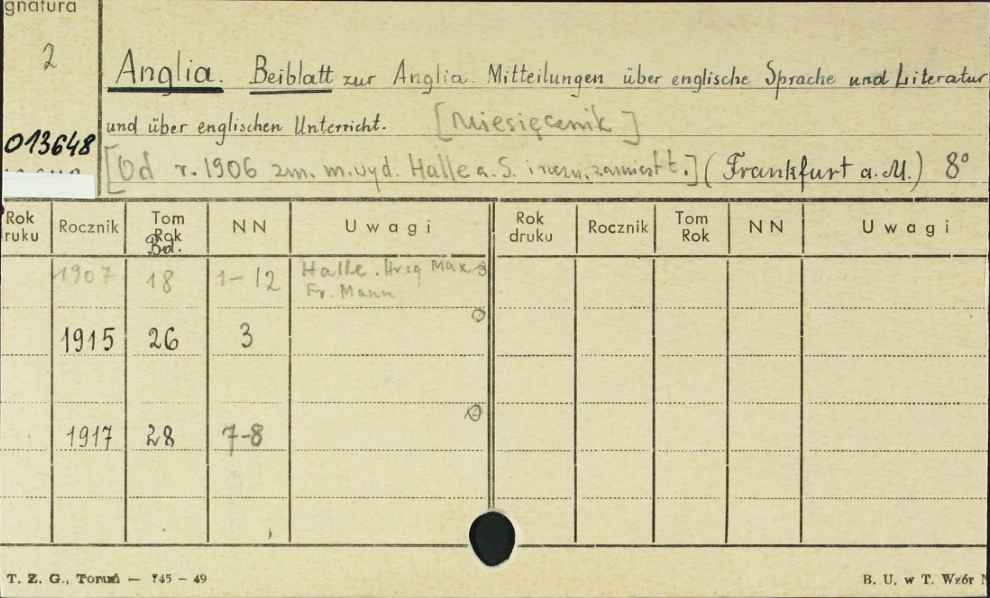 gnatura
2
Anglia. Beiblatt zur Anglia. Mitteilungen über englische Sprache und Literatur
und über englischen Unterricht. [Miesięcznik]
013648
[Od r. 1906 zm. m. wyd. Halle a. S. i (Frankfurt a. M.) 8°
Rok druku Rocznik Tom Rok Bd. NN Uwagi Rok druku Rocznik Tom Rok NN Uwagi
1907 18 1-12 Halle. Hrsg Max
Fr. Mann
1915 26 3
1917 28 7-8
T. Z. G., Toruń — 745 - 49 B. U. w T. Wzór